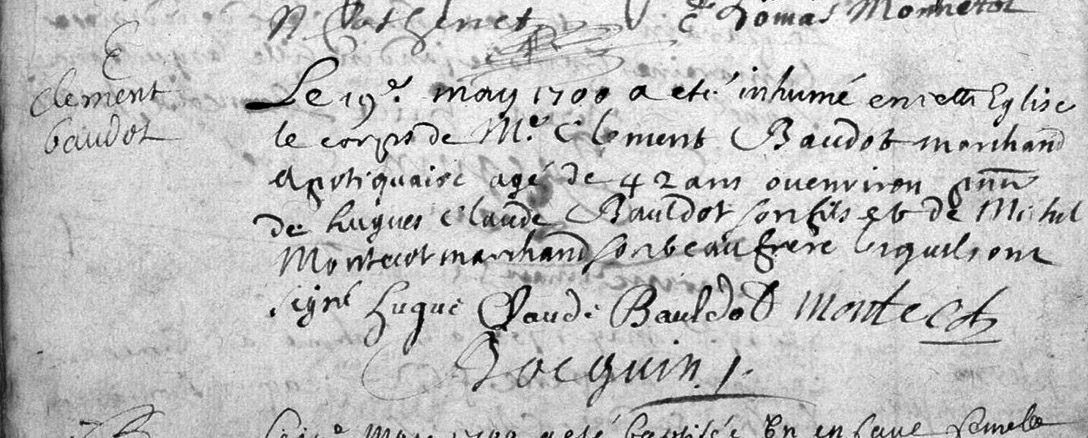 Tomas Monnetot
Clement
baudot
Le 19e. may 1700 a eté inhumé en cette Eglise
le corps de Mre Clement Baudot marchand
Apotiquaire agé de 42 ans ou environ
de hugues Claude Bauldot son fils et de Michel
Montecot marchand son beau frere lesquels ont
signé hugue Claude Bauldot Montecot
Jocquin
may 1700 a eté baptisée